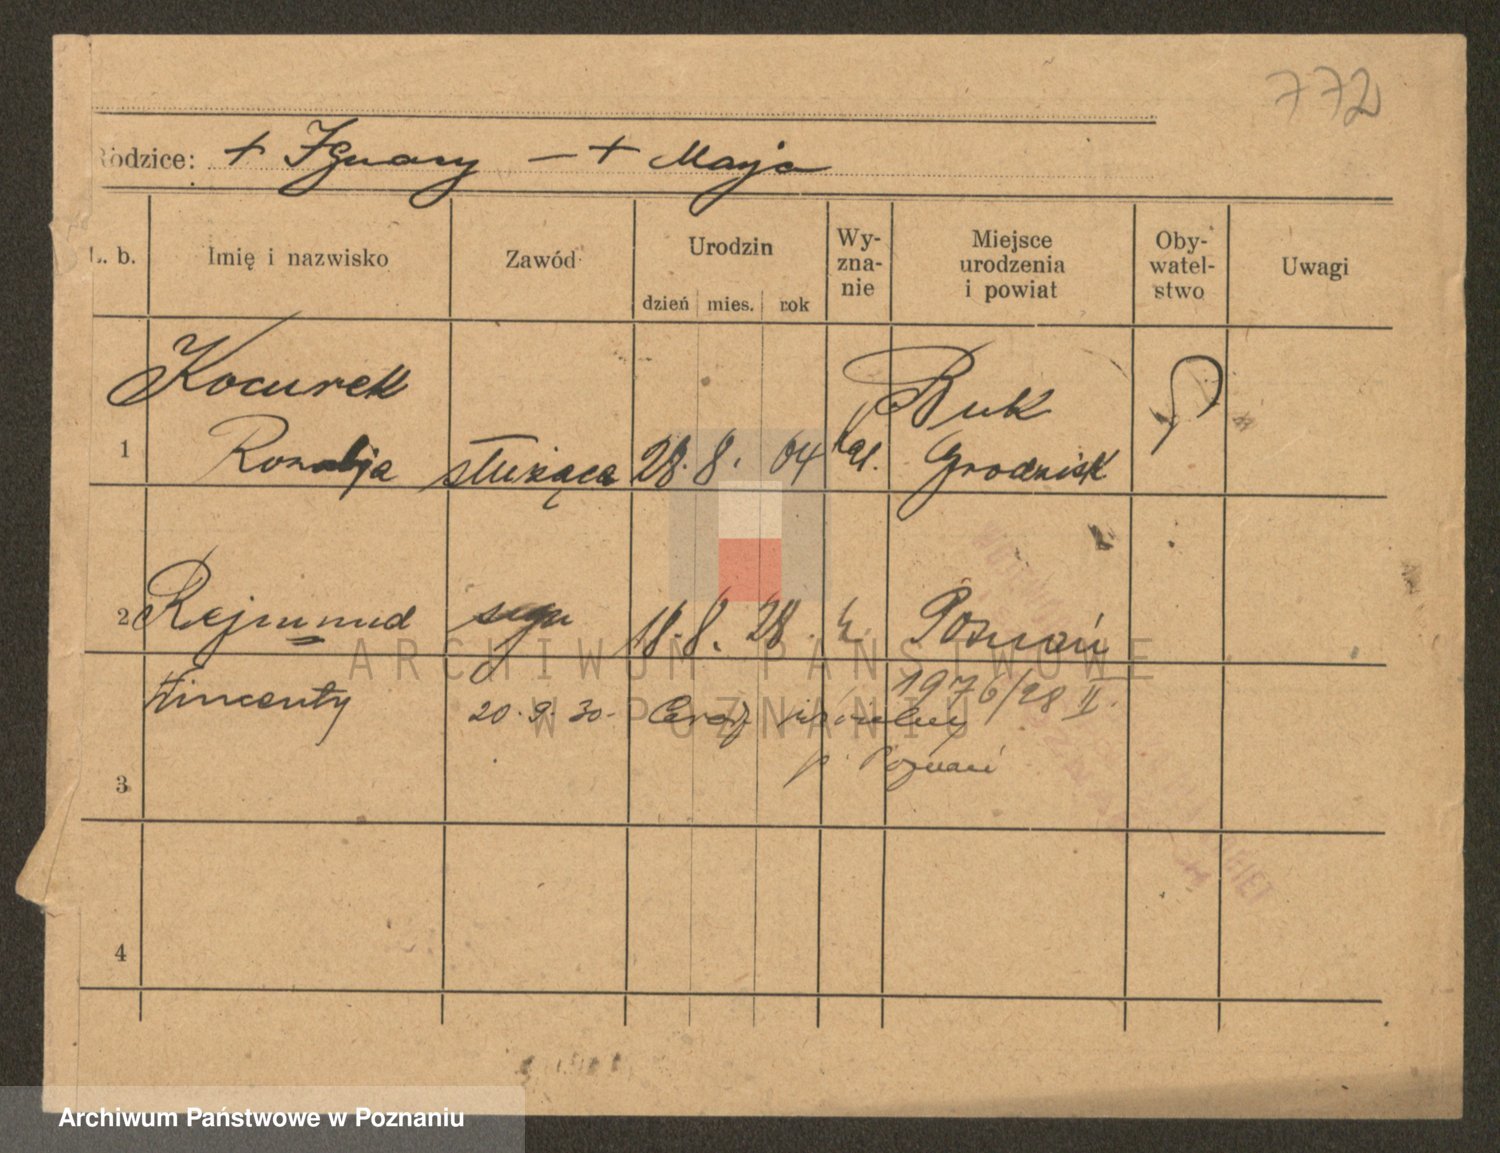 772
Rodzice: + Ignacy — + Marja
L. b. Imię i nazwisko Zawód Urodzin dzień mies. rok Wy-zna-nie Miejsce urodzenia i powiat Oby-watel-stwo Uwagi
Kocurek Buk
1 Rozalja służąca 28. 8. 04 kat. Grodzisk
2 Rejmund syn 18. 8. 28. k. Poznań
Wincenty 1976/28 II.
20. 9. 30.
3 p. Poznań
4
ARCHIWUM PAŃSTWOWE
W POZNANIU
Archiwum Państwowe w Poznaniu